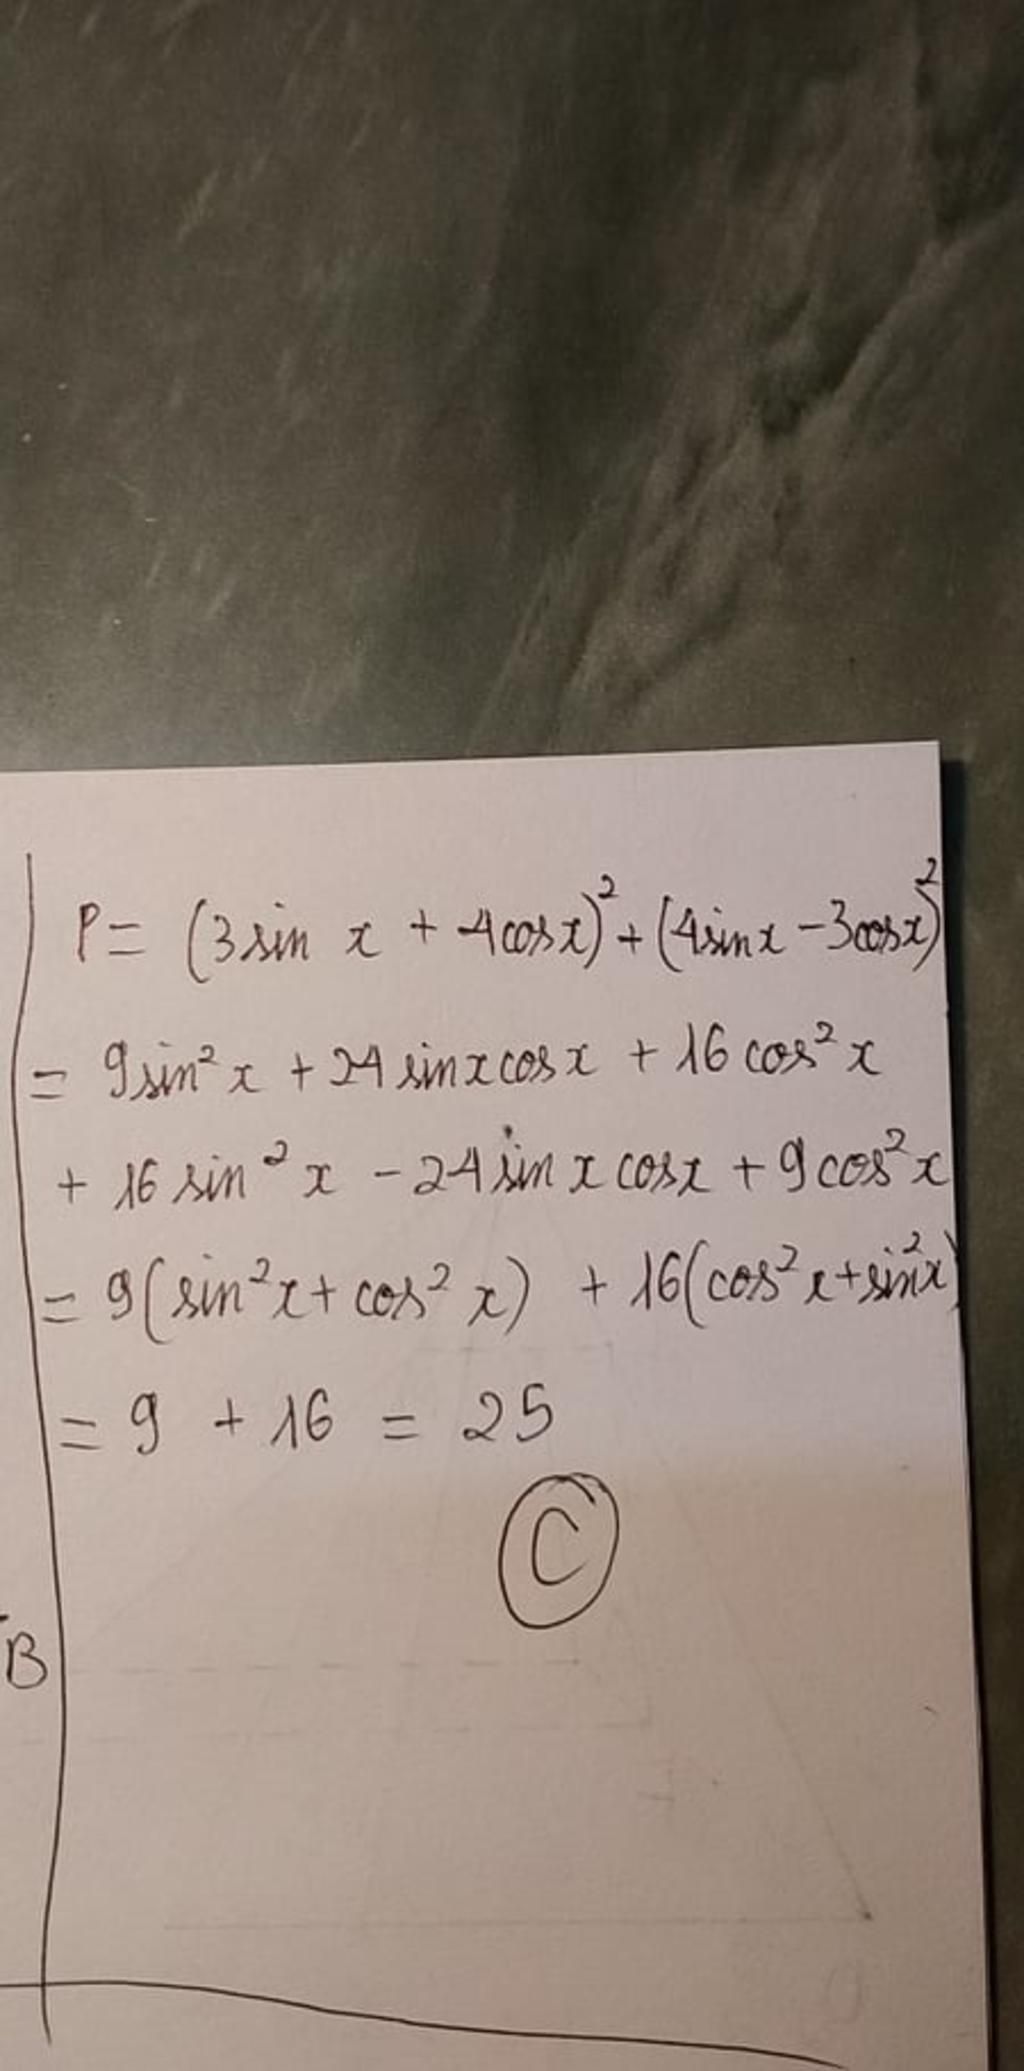 P = (3 sin x + 4cosx)² + (4sinx - 3cosx)²
= 9sin² x + 24 sinx cosx + 16 cos² x
+ 16 sin² x - 24 sin x cosx + 9 cos² x
= 9(sin² x + cos² x) + 16(cos² x + sin² x)
= 9 + 16 = 25
C
B